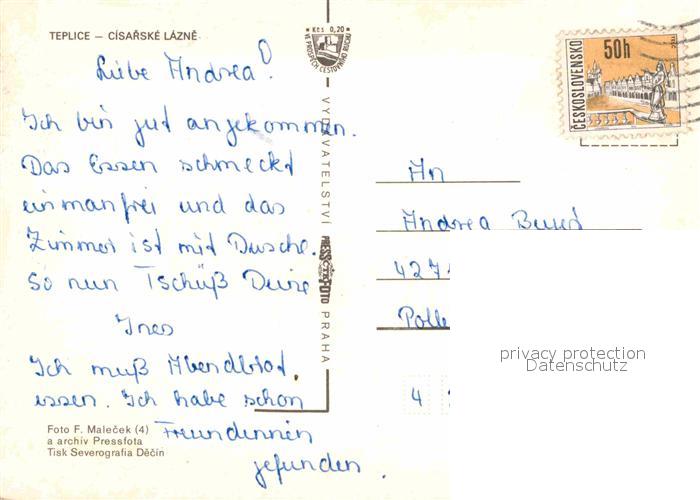 TEPLICE – CÍSAŘSKÉ LÁZNĚ
Kčs 0,20
VE PROSPĚCH CESTOVNÍHO RUCHU
Liebe Andrea!
Ich bin gut angekommen.
Das Essen schmeckt
einmanfrei und das
Zimmer ist mit Dusche.
So nun Tschüß Deine
Ines
Ich muß Abendbrot
essen. Ich habe schon
Freundinnen
gefunden.
Foto F. Maleček (4)
a archiv Pressfota
Tisk Severografia Děčín
VYDAVATELSTVÍ PRESSFOTO PRAHA
ČESKOSLOVENSKO
50h
An
Andrea
427
Polle
4
privacy protection
Datenschutz